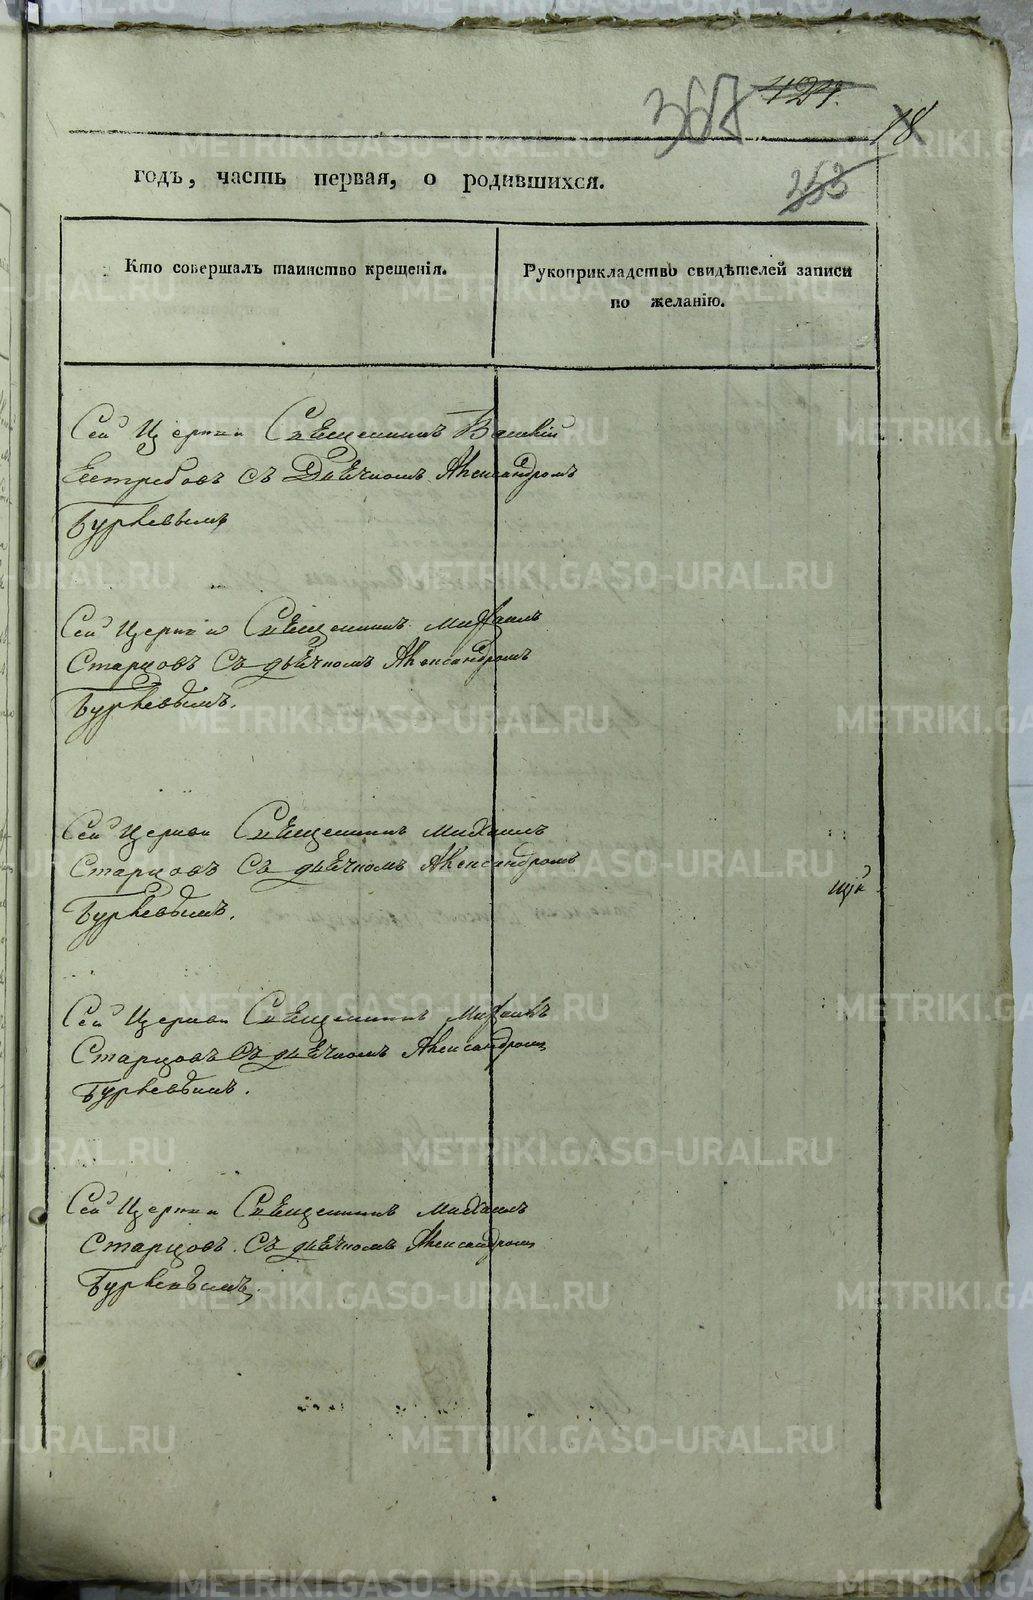 368 424.
18
353
годъ, часть первая, о родившихся.
Кто совершалъ таинство крещенія.
Рукоприкладство свидѣтелей записи
по желанію.
Сей Церкви Священникъ
Ястребовъ съ Дьячкомъ Александромъ
Бурневымъ
Сей Церкви Священникъ Михаилъ
Старцовъ Съ дьячкомъ Александромъ
Бурневымъ.
Сей Церкви Священникъ Михаилъ
Старцовъ Съ дьячкомъ Александромъ
Бурневымъ.
Сей Церкви Священникъ Михаилъ
Старцовъ Съ дьячкомъ Александромъ
Бурневымъ.
Сей Церкви Священникъ Михаилъ
Старцовъ. Съ дьячкомъ Александромъ
Бурневымъ.
METRIKI.GASO-URAL.RU